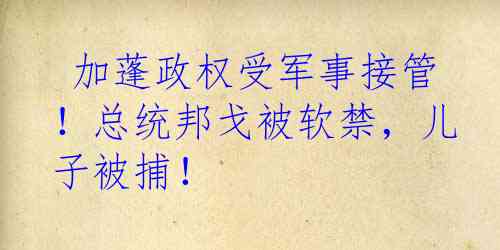 加蓬政权受军事接管
！总统邦戈被软禁，儿
子被捕！